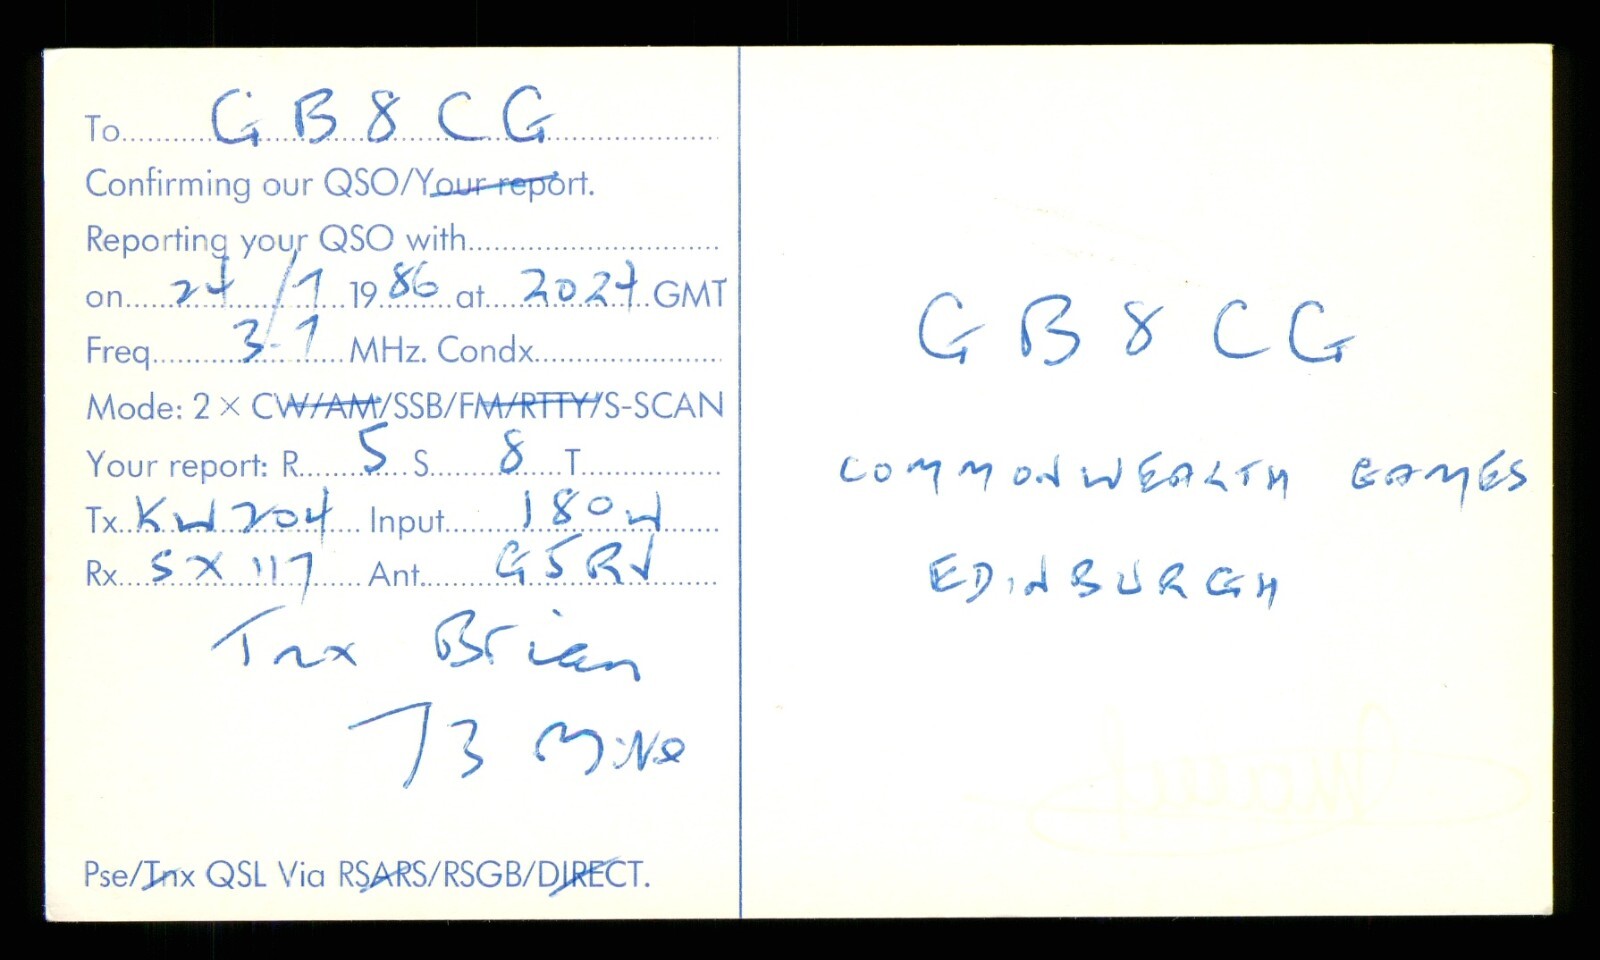 To GB8CG
Confirming our QSO/Your report.
Reporting your QSO with
on 24/7 1986 at 2024 GMT
Freq. 3.7 MHz. Condx.
Mode: 2 × CW/AM/SSB/FM/RTTY/S-SCAN
Your report: R 5 S 8 T
Tx KW204 Input 180W
Rx SX117 Ant. G5RV
Tnx Brian
73 Mike
Pse/Tnx QSL Via RSARS/RSGB/DIRECT.
GB8CG
COMMONWEALTH GAMES
EDINBURGH